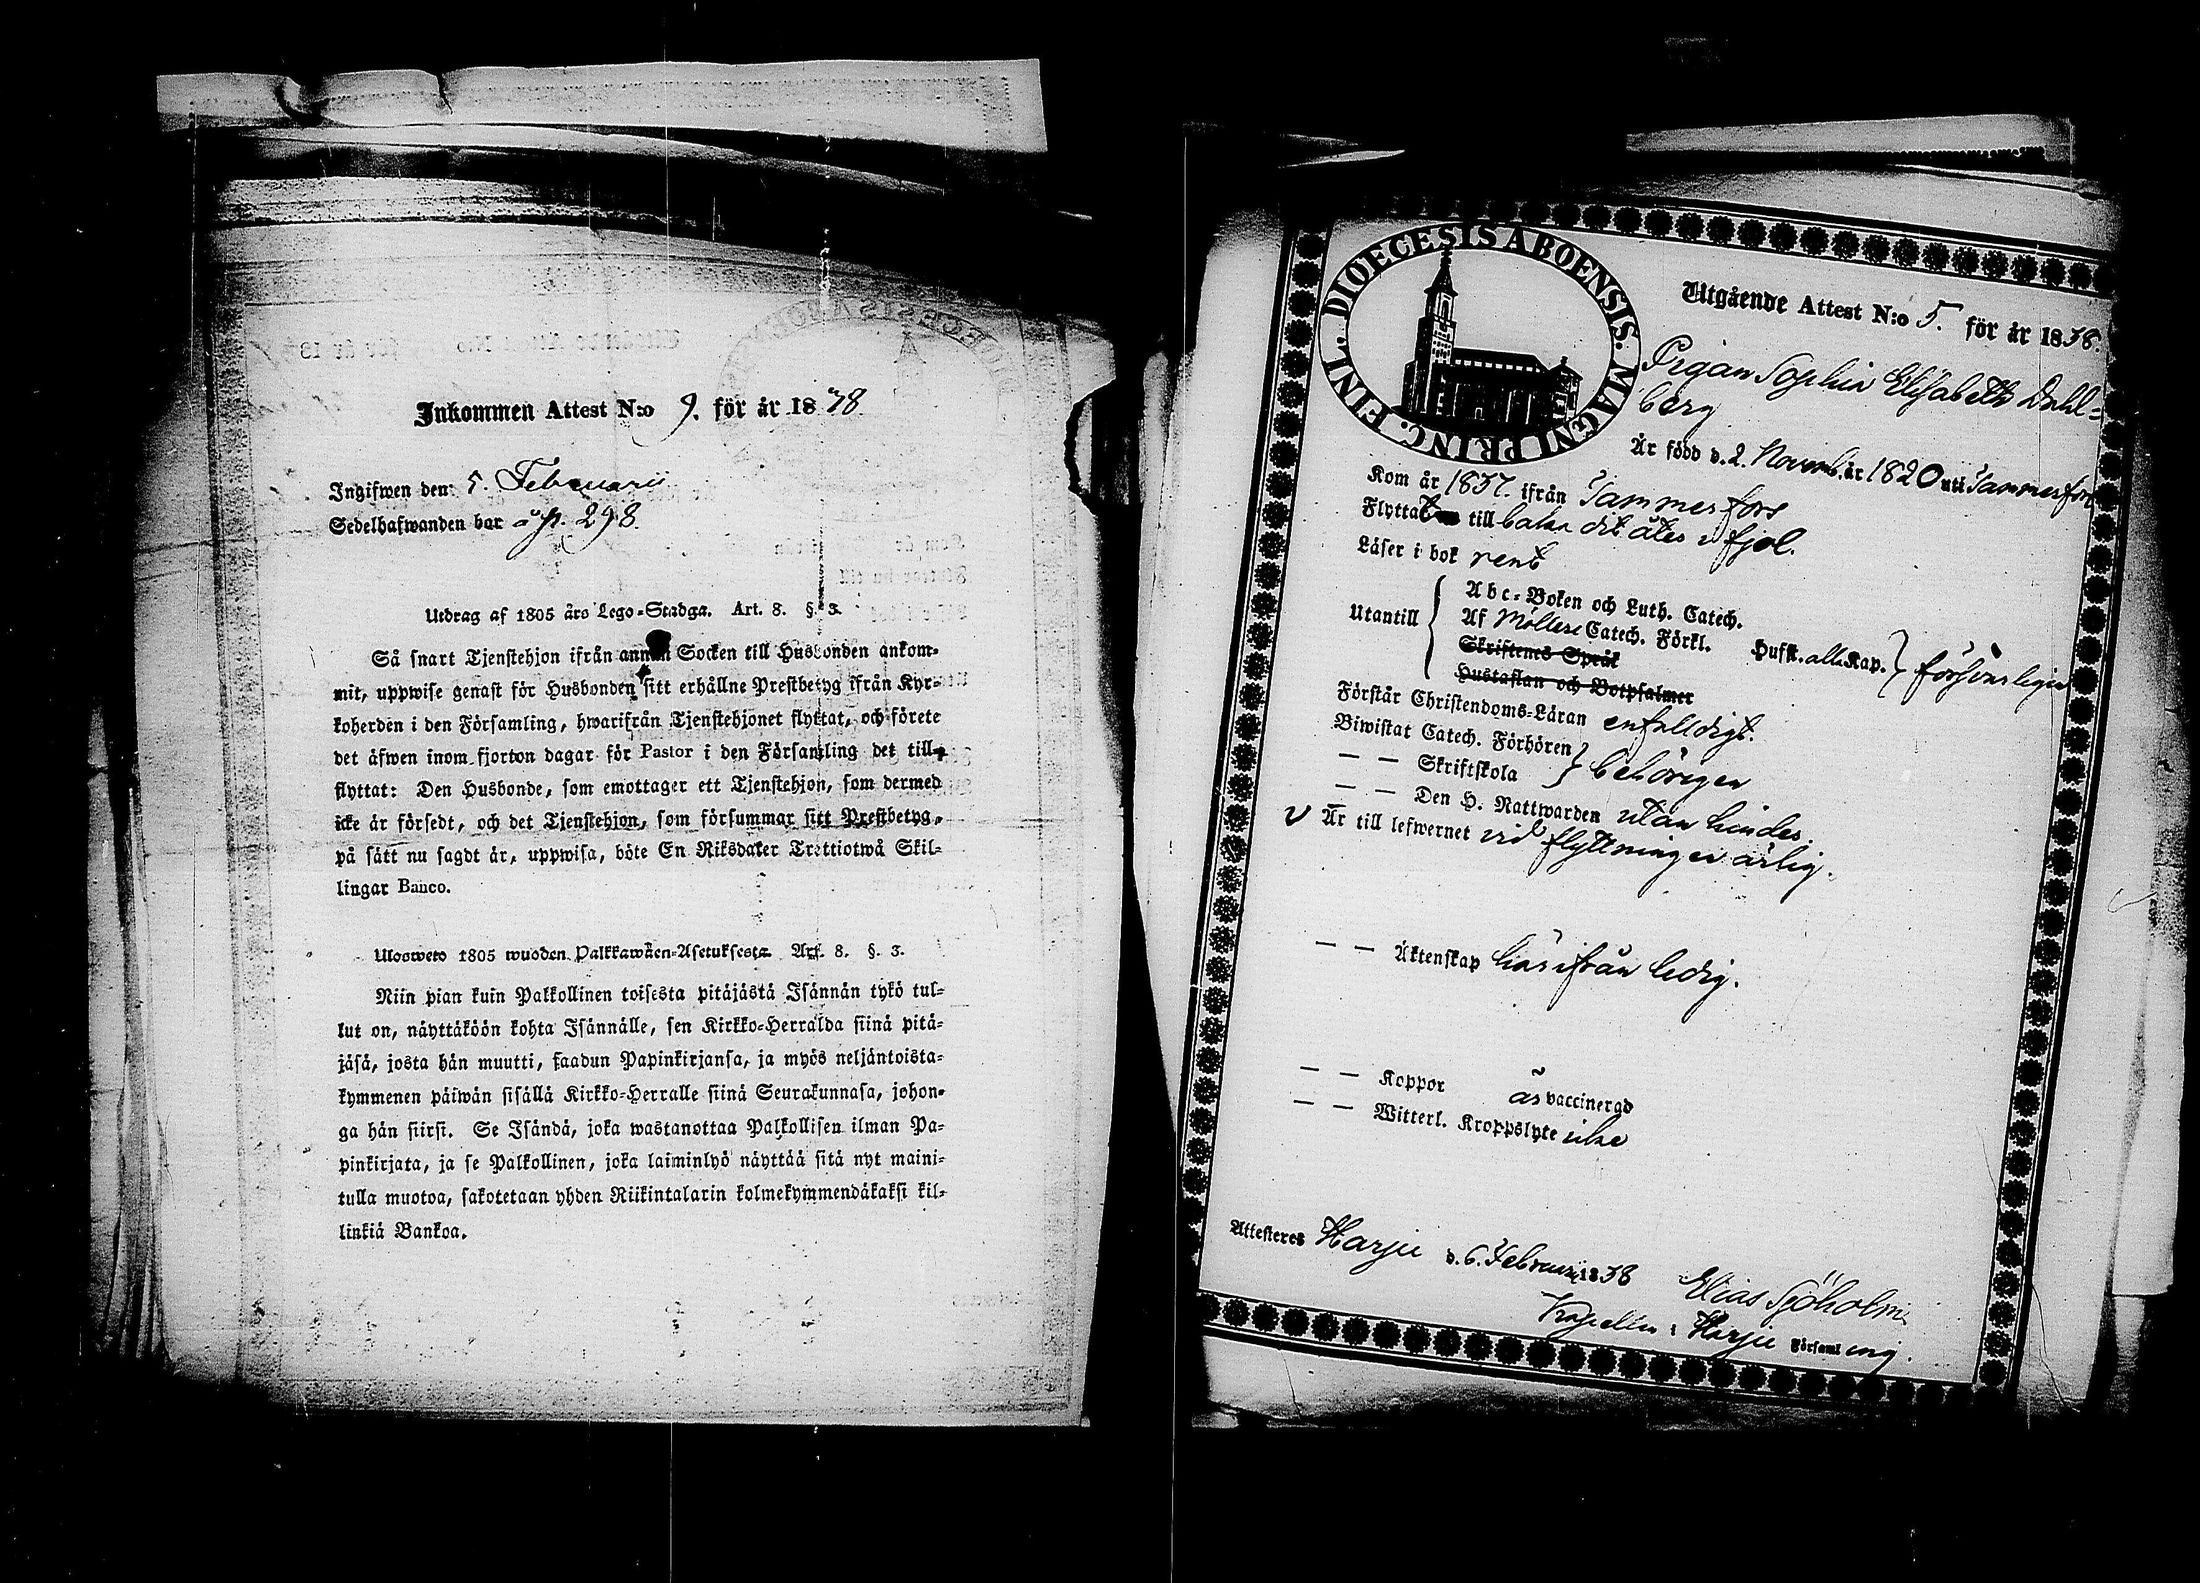 Inkommen Attest N:o 9. för år 1838
Ingifwen den: 5. Februarii
Sedelhafwanden bor å p. 298
Utdrag af 1805 års Lego-Stadga. Art. 8. §. 3.
Så snart Tjenstehjon ifrån annan Socken till Husbonden ankom-
mit, uppwise genast för Husbonden sitt erhållne Prestbetyg ifrån Kyr-
koherden i den Församling, hwarifrån Tjenstehjonet flyttat, och förete
det äfwen inom fjorton dagar för Pastor i den Församling det till-
flyttat: Den Husbonde, som emottager ett Tjenstehjon, som dermed
icke är försedt, och det Tjenstehjon, som försummar sitt Prestbetyg,
på sätt nu sagdt är, uppwisa, böte En Riksdaler Trettiotwå Skil-
lingar Banco.
Ulosweto 1805 wuoden Palkkawäen-Asetuksesta Art. 8. §. 3.
Niin pian kuin Palkollinen toisesta pitäjästä Isännän tykö tul-
lut on, näyttäköön kohta Isännälle, sen Kirkko-Herralda siinä pitä-
jäsä, josta hän muutti, saadun Papinkirjansa, ja myös neljäntoista-
kymmenen päiwän sisällä Kirkko-Herralle siinä Seurakunnasa, johon-
ga hän siirsi. Se Isändä, joka wastanottaa Palkollisen ilman Pa-
pinkirjata, ja se Palkollinen, joka laiminlyö näyttää sitä nyt maini-
tulla muotoa, sakotetaan yhden Riikintalarin kolmekymmendäkaksi kil-
linkiä Bankoa.
DIOECESIS ABOENSIS. MAGNI PRINC. FINL.
Utgående Attest N:o 5. för år 1838.
Pigan Sophia Elisabeth Dahl=
berg
Är född d. 2. Novemb. år 1820 uti Tammerfors
Kom år 1837. ifrån Tammerfors
Flyttat till baka dit åter i fjol.
Läser i bok rent
Utantill
Abc-Boken och Luth. Catech.
Af Möllers Catech. Förkl. Husk. alla Kap. försvarligen
Skriftenes Språk
Hustaflan och Botpsalmer
Förstår Christendoms-Läran enfalldigt.
Biwistat Catech. Förhören
— — Skriftskola behörigen
— — Den H. Nattwarden utan hinder.
v Är till lefwernet vid flyttningen ärlig.
— — Äktenskap härifrån ledig.
— — Koppor är vaccinerad
— — Witterl. Kroppslyte icke
Attesteres Harju d. 6. Februari 1838
Elias Sjöholm
Kapellan i Harju Församling.